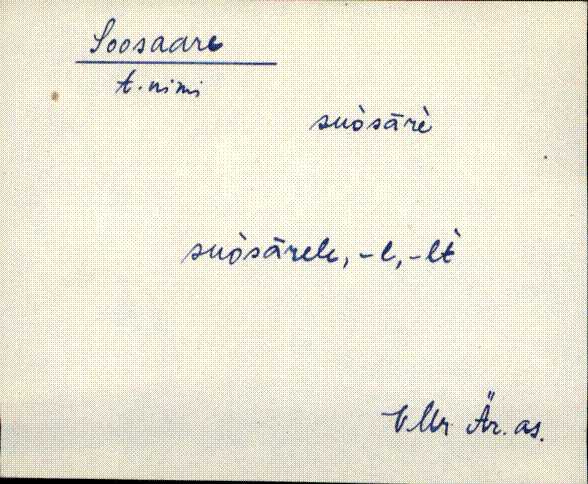 Soosaare
t. nimi
suòsārè
suòsārele, -l, -lt̀
VMr Är. as.